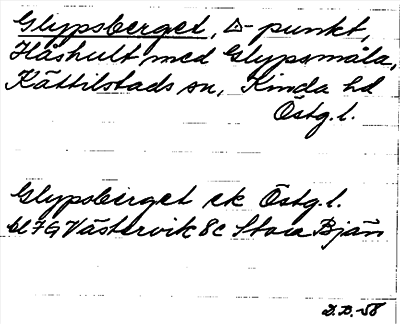 Glypsberget, △-punkt,
Håshult med Glypsmåla,
Kättilstads sn, Kinda hd
Östg. l.
Glypsberget ek Östg. l.
bl 7G Västervik 8c Stora Bjän
D.D.-58